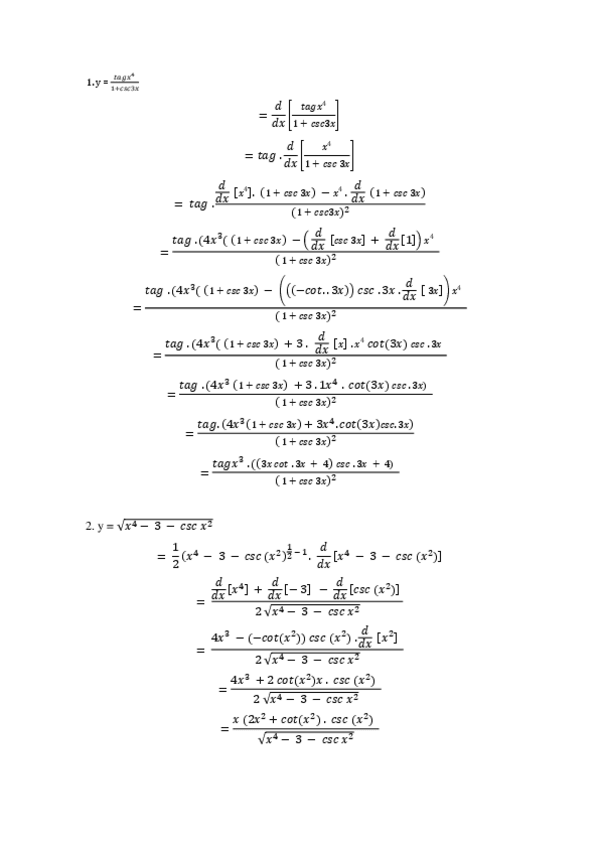 1.y = tagx⁴/(1+csc3x)
= d/dx [tagx⁴/(1 + csc3x)]
= tag . d/dx [x⁴/(1 + csc 3x)]
= tag . (d/dx [x⁴]. (1 + csc 3x) − x⁴. d/dx (1 + csc 3x))/(1 + csc3x)²
= tag .(4x³( (1 + csc 3x) − (d/dx [csc 3x] + d/dx [1]) x⁴/(1 + csc 3x)²
= tag .(4x³( (1 + csc 3x) − (((−cot..3x)) csc .3x . d/dx [ 3x]) x⁴/(1 + csc 3x)²
= tag .(4x³( (1 + csc 3x) + 3 . d/dx [x] .x⁴ cot(3x) csc .3x/(1 + csc 3x)²
= tag .(4x³ (1 + csc 3x) + 3 .1x⁴ . cot(3x) csc .3x)/(1 + csc 3x)²
= tag.(4x³(1 + csc 3x) + 3x⁴.cot(3x)csc.3x)/(1 + csc 3x)²
= tagx³ .((3x cot .3x + 4) csc .3x + 4)/(1 + csc 3x)²
2. y = √(x⁴ − 3 − csc x²)
= 1/2 (x⁴ − 3 − csc (x²)^(1/2 − 1). d/dx [x⁴ − 3 − csc (x²)]
= (d/dx [x⁴] + d/dx [− 3] − d/dx [csc (x²)])/(2 √(x⁴ − 3 − csc x²))
= (4x³ − (−cot(x²)) csc (x²) . d/dx [x²])/(2 √(x⁴ − 3 − csc x²))
= (4x³ + 2 cot(x²)x . csc (x²))/(2 √(x⁴ − 3 − csc x²))
= x (2x² + cot(x²) . csc (x²)/√(x⁴ − 3 − csc x²)